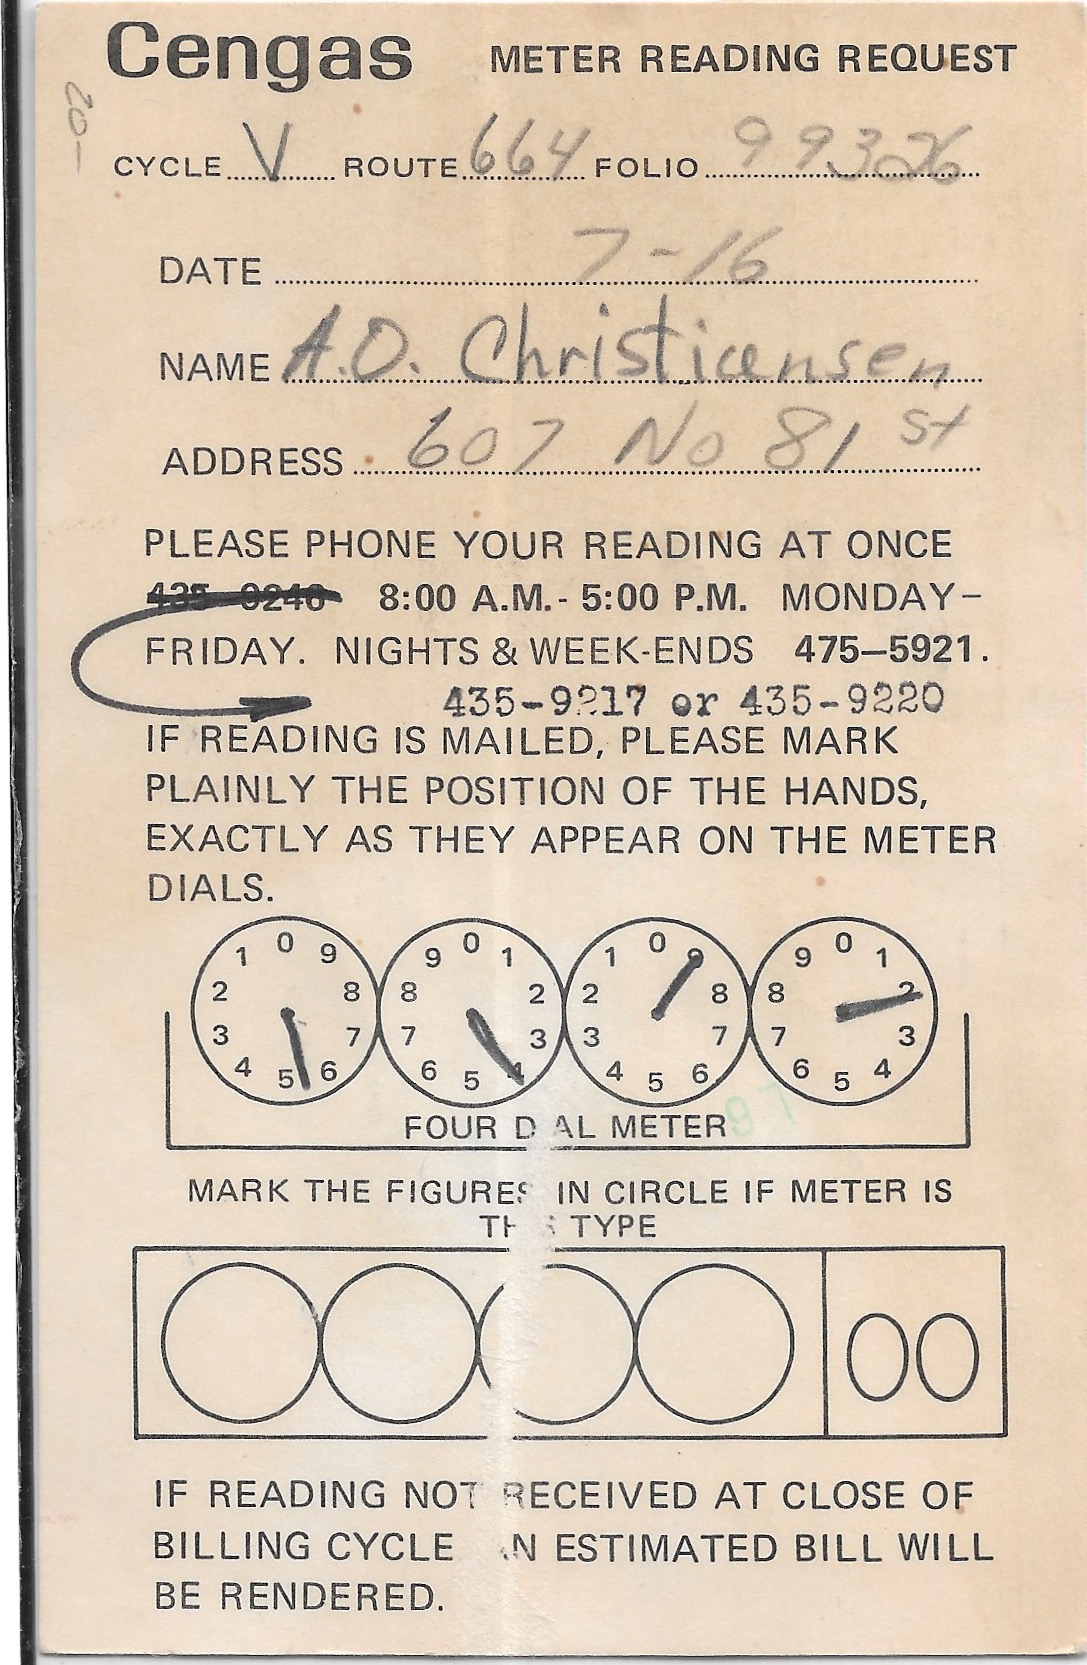 Cengas METER READING REQUEST
20-
CYCLE V ROUTE 664 FOLIO 99326
DATE 7-16
NAME A.O. Christiansen
ADDRESS 607 No 81 st
PLEASE PHONE YOUR READING AT ONCE
435-9246 8:00 A.M.- 5:00 P.M. MONDAY-
FRIDAY. NIGHTS & WEEK-ENDS 475-5921.
435-9217 or 435-9220
IF READING IS MAILED, PLEASE MARK
PLAINLY THE POSITION OF THE HANDS,
EXACTLY AS THEY APPEAR ON THE METER
DIALS.
0 9 8 7 6 5 4 3 2 1
0 1 2 3 4 5 6 7 8 9
0 9 8 7 6 5 4 3 2 1
0 1 2 3 4 5 6 7 8 9
FOUR D AL METER
97
MARK THE FIGURES IN CIRCLE IF METER IS
TH S TYPE
00
IF READING NOT RECEIVED AT CLOSE OF
BILLING CYCLE AN ESTIMATED BILL WILL
BE RENDERED.